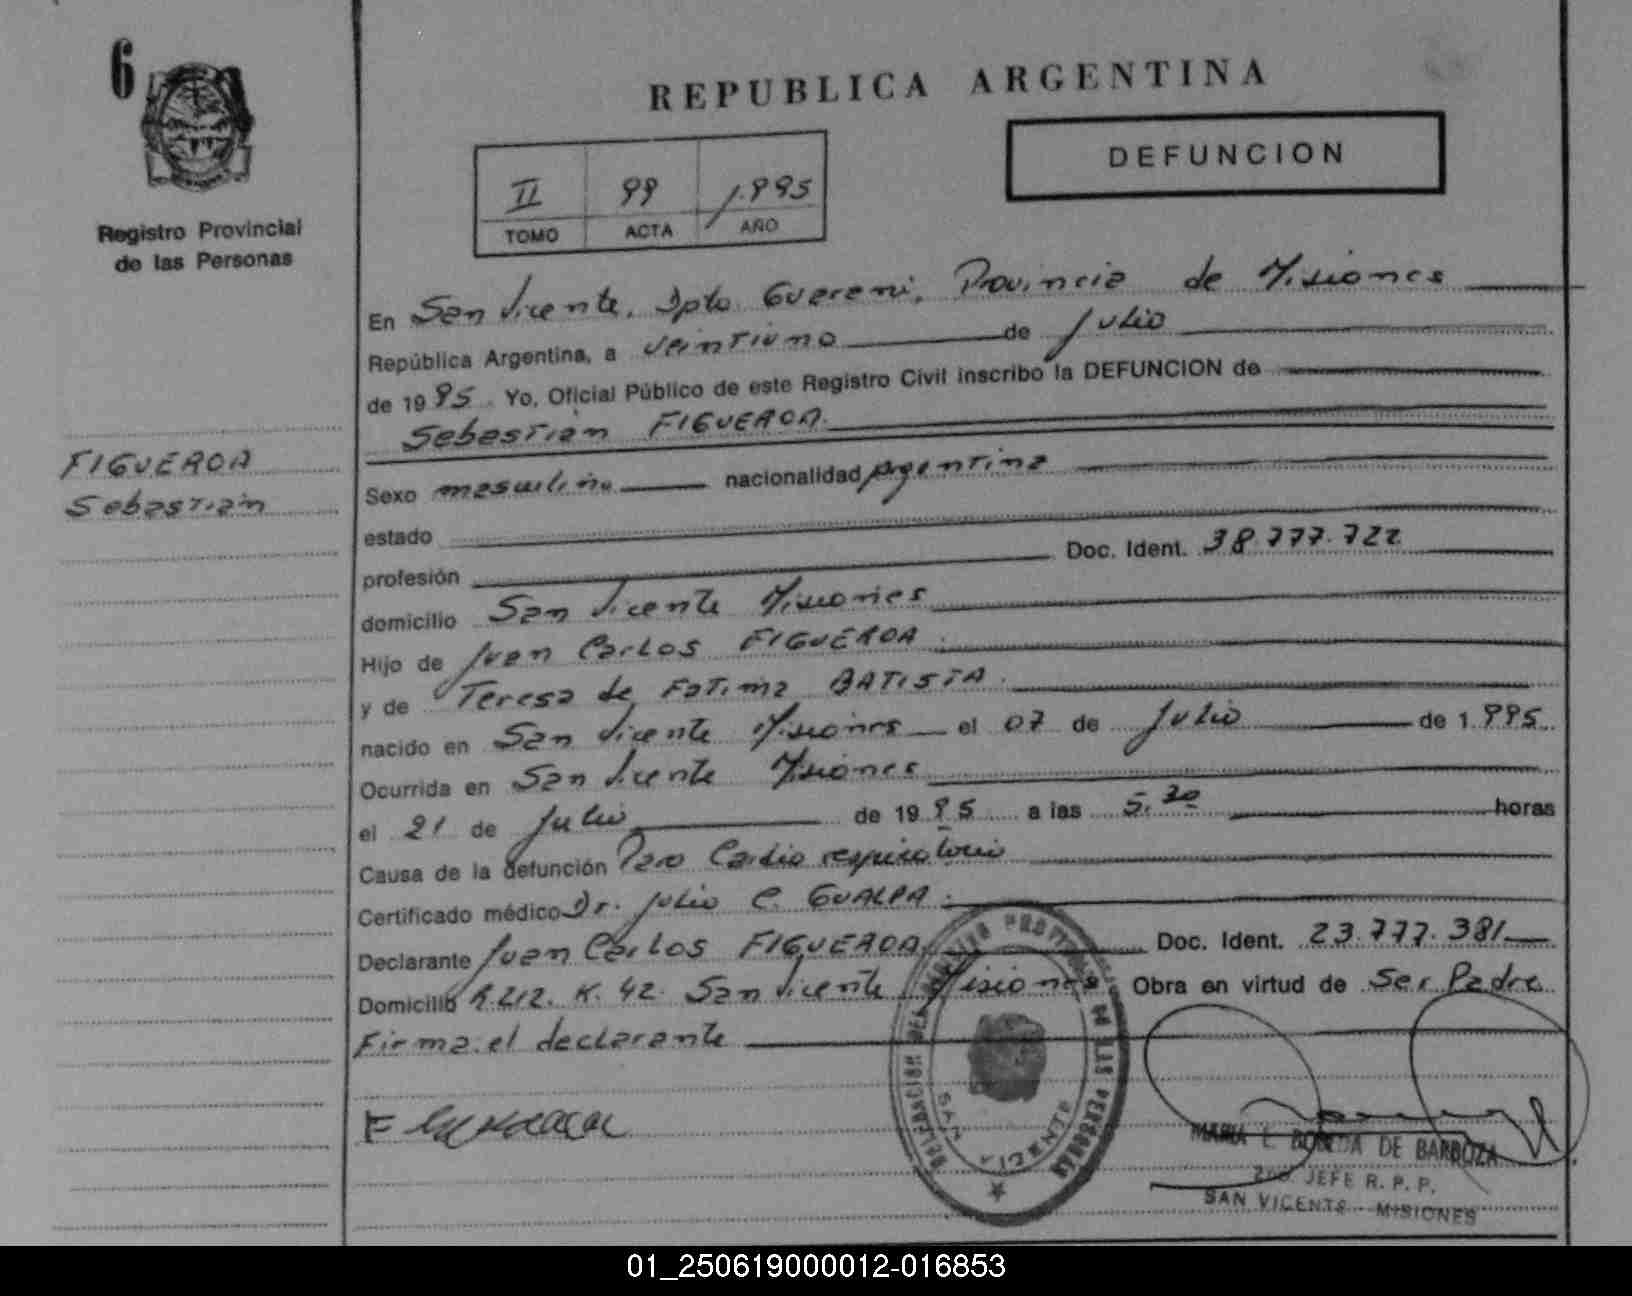 6
REPUBLICA ARGENTINA
DEFUNCION
Registro Provincial
de las Personas
II 99 1.995
TOMO ACTA AÑO
En San Vicente, Dpto. Guarani, Provincia de Misiones
República Argentina, a veintiuno de Julio
de 1995 Yo, Oficial Público de este Registro Civil inscribo la DEFUNCION de
Sebastián FIGUEROA.
FIGUEROA
Sebastián
Sexo masculino nacionalidad Argentina
estado
profesión Doc. Ident. 38.777.722
domicilio San Vicente Misiones
Hijo de Juan Carlos FIGUEROA.
y de Teresa de Fatima BATISTA.
nacido en San Vicente Misiones el 07 de Julio de 1.995
Ocurrida en San Vicente Misiones
el 21 de Julio de 1995 a las 5.30 horas
Causa de la defunción Paro Cardio respiratorio
Certificado médico Dr. Julio C. GUALPA.
Declarante Juan Carlos FIGUEROA. Doc. Ident. 23.777.381
Domicilio R.212. K. 42. San Vicente Misiones Obra en virtud de Ser Padre
Firma el declarante
DELEGACION DEL REGISTRO PROVINCIAL DE LAS PERSONAS
SAN VICENTE
MARIA E. BOBEDA DE BARBOZA
2do. JEFE R. P. P.
SAN VICENTE - MISIONES
01_250619000012-016853